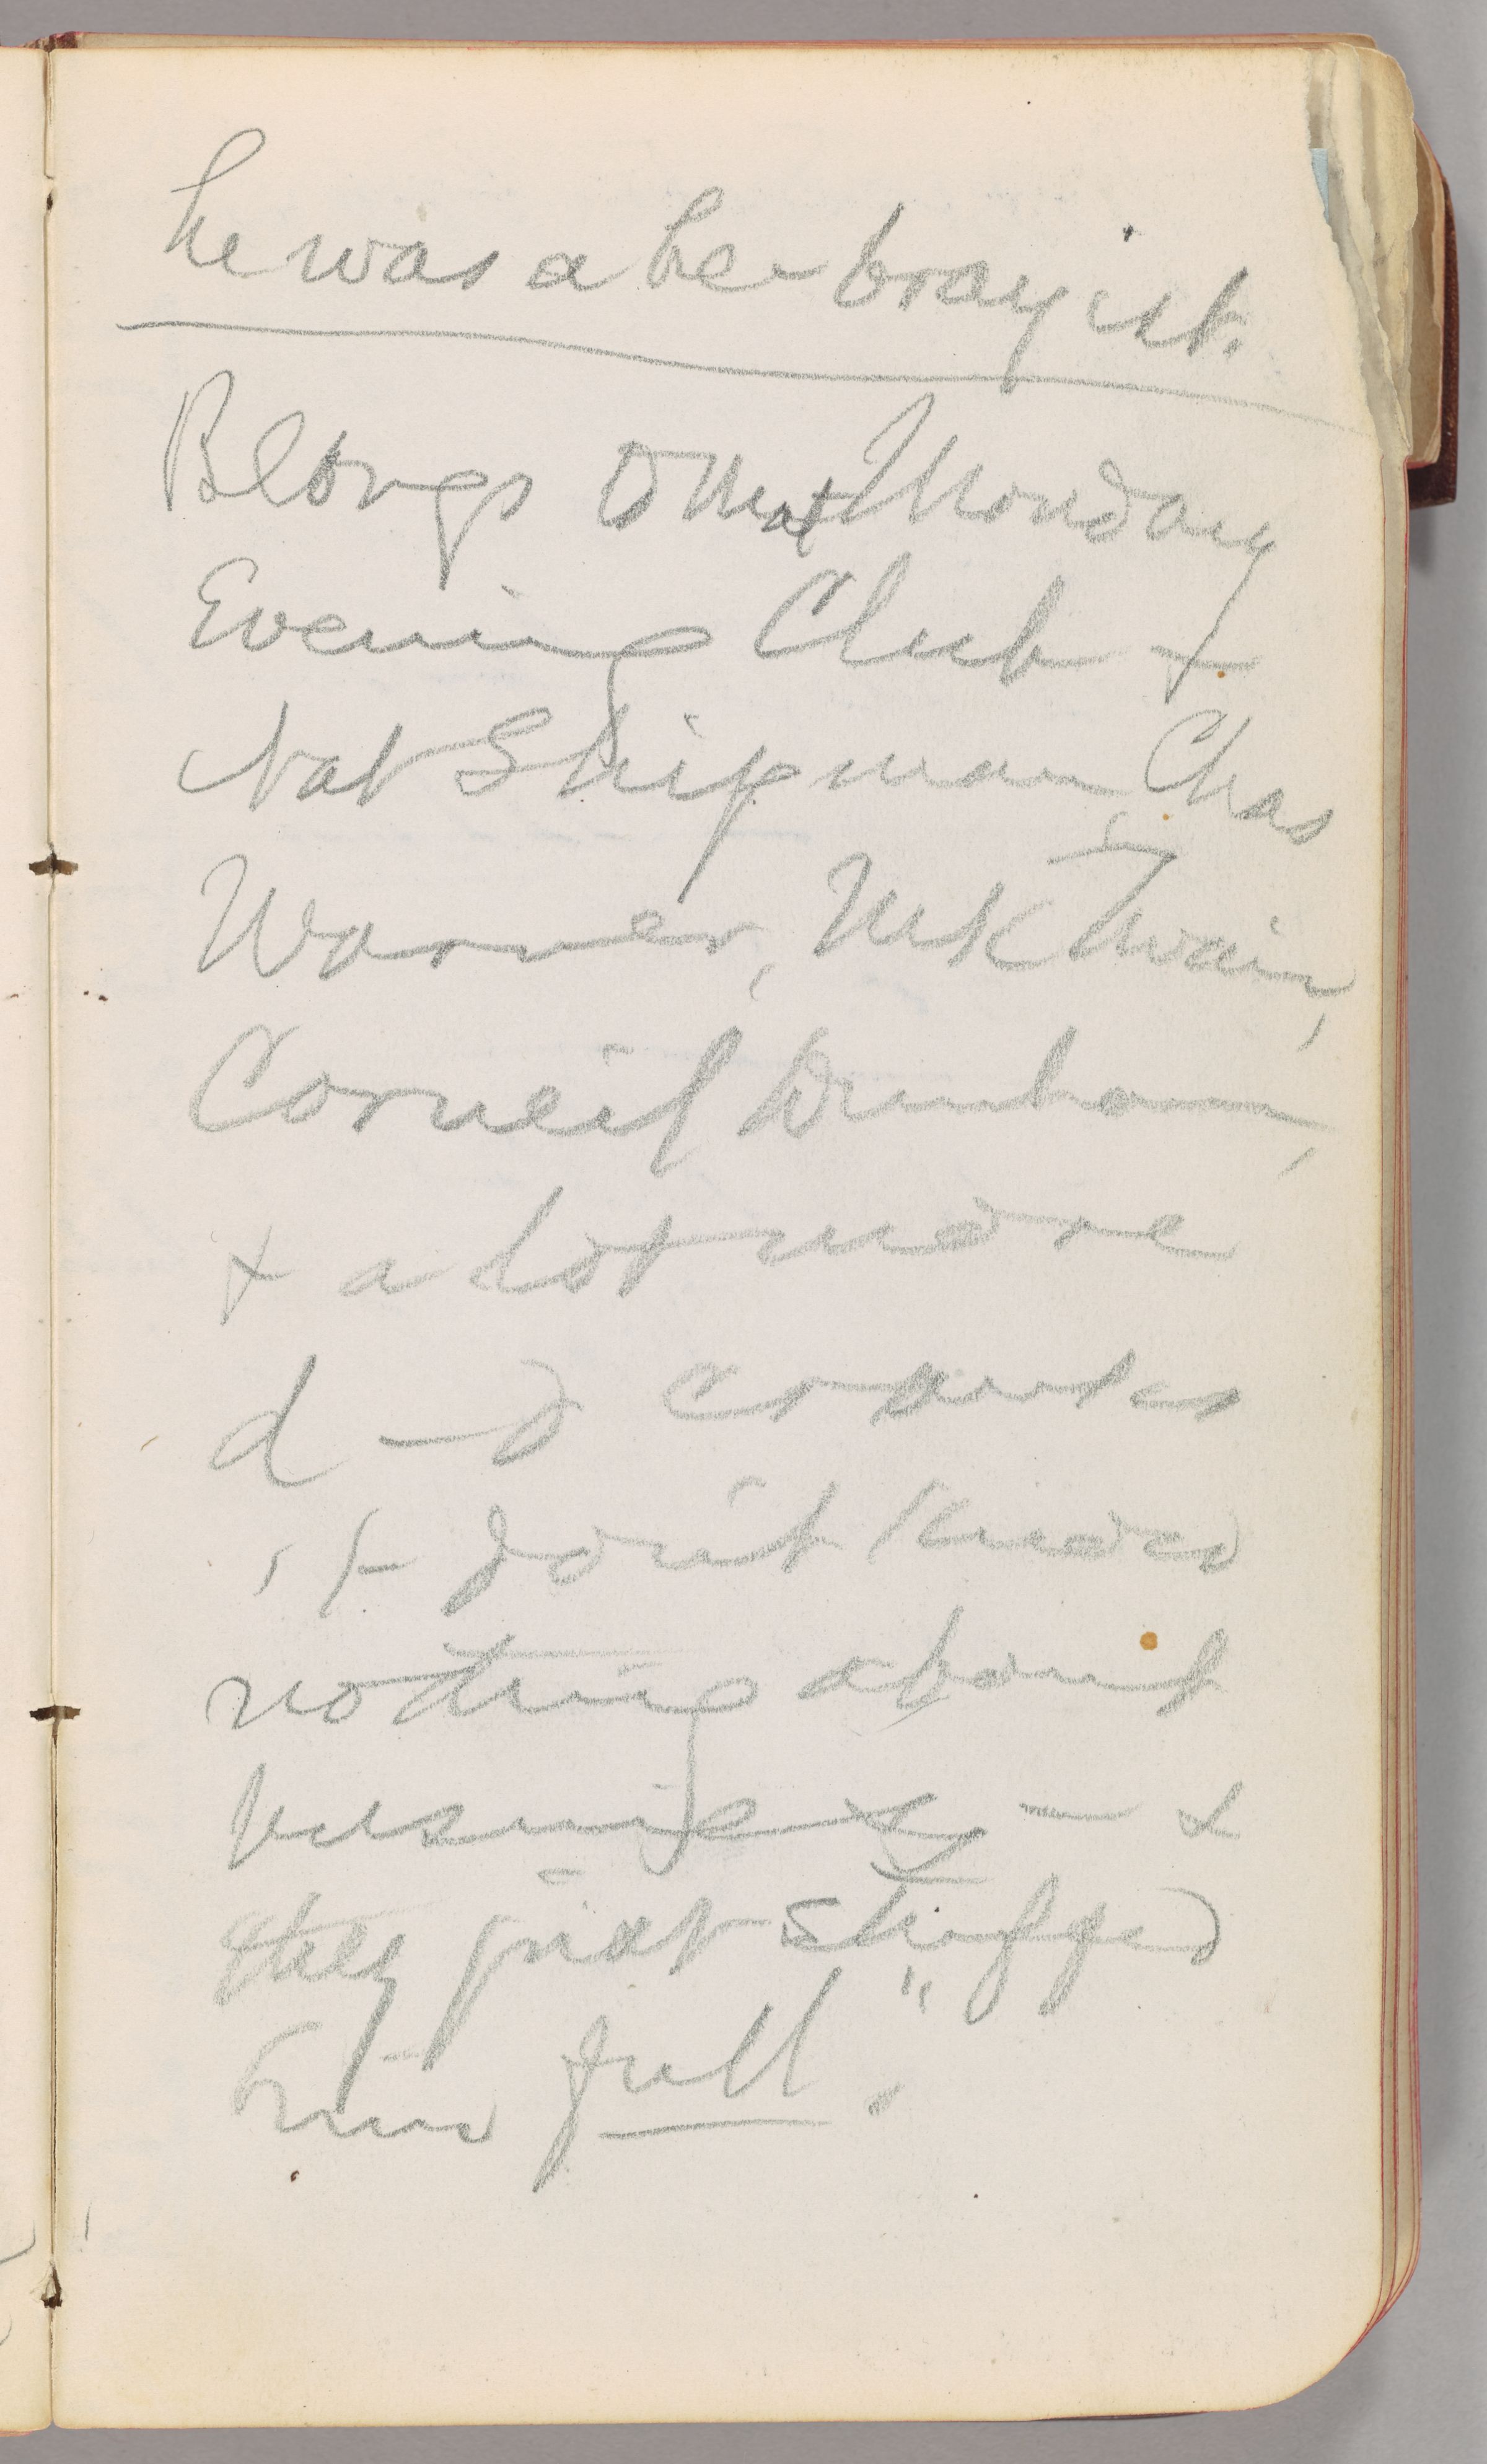 he was a he-brayist.
Blongs to that Monday
Evening Club &
Nat Shipman, Chas
Warner, Mk Twain,
Corneil Dunham,
& a lot more
d—d
, & don't know
nothing about
— &
they just stuffed
him full."